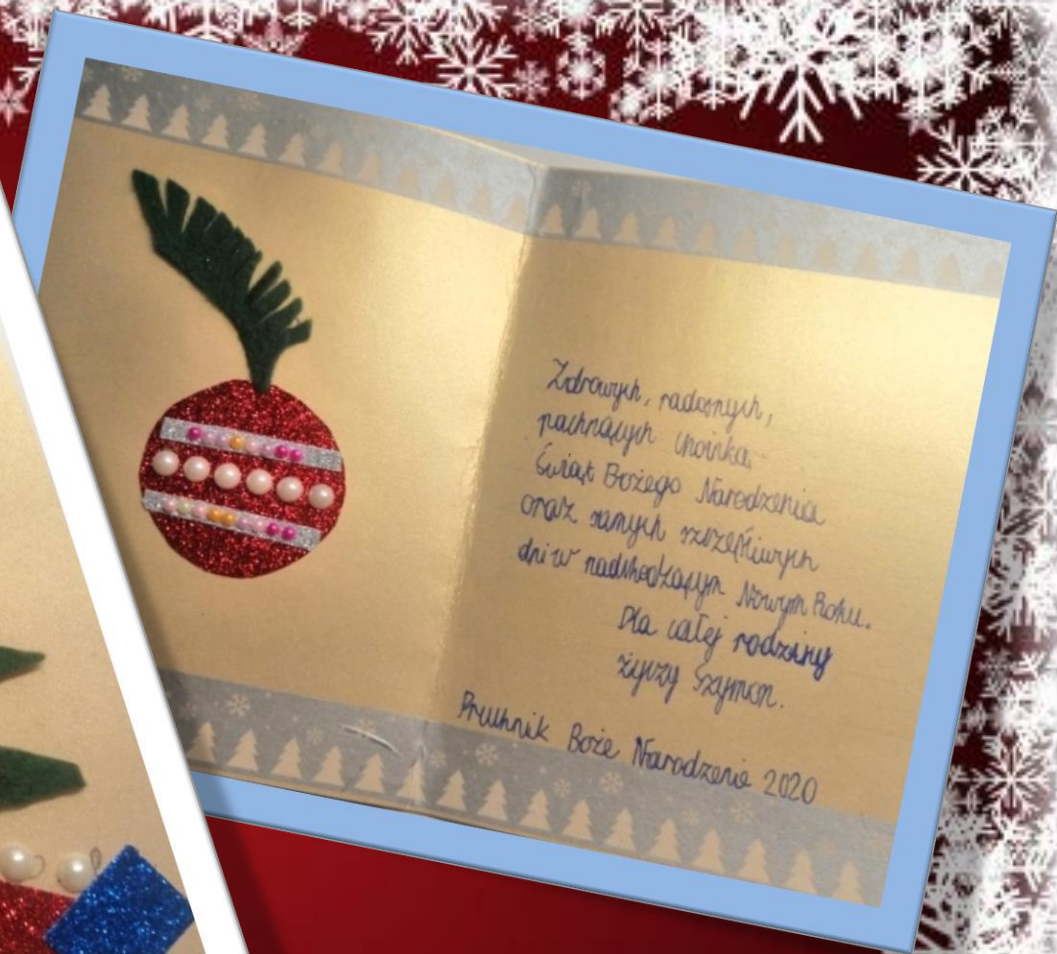 Zdrowych, radosnych,
pachnących choinką
Świąt Bożego Narodzenia
oraz samych szczęśliwych
dni w nadchodzącym Nowym Roku.
Dla całej rodziny
życzy Szymon.
Pruchnik Boże Narodzenie 2020